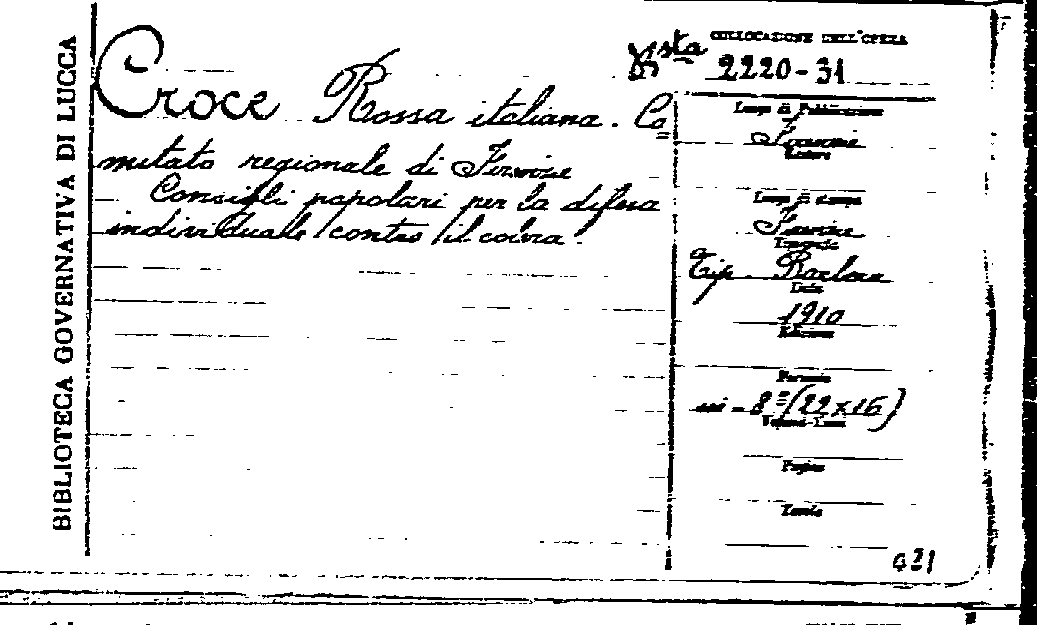 BIBLIOTECA GOVERNATIVA DI LUCCA
Croce Rossa italiana. Co=
mitato regionale di Firenze
Consigli popolari per la difesa
individuale contro il colera.
Bsta
COLLOCAZIONE DELL'OPERA
2220-31
Luogo di Pubblicazione
Firenze
Editore
Luogo di stampa
Firenze
Tipografia
Tip. Barbera
Data
1910
Edizione
Formato
in-8º (22x16)
Volume-Tomo
Pagine
Tavole
421